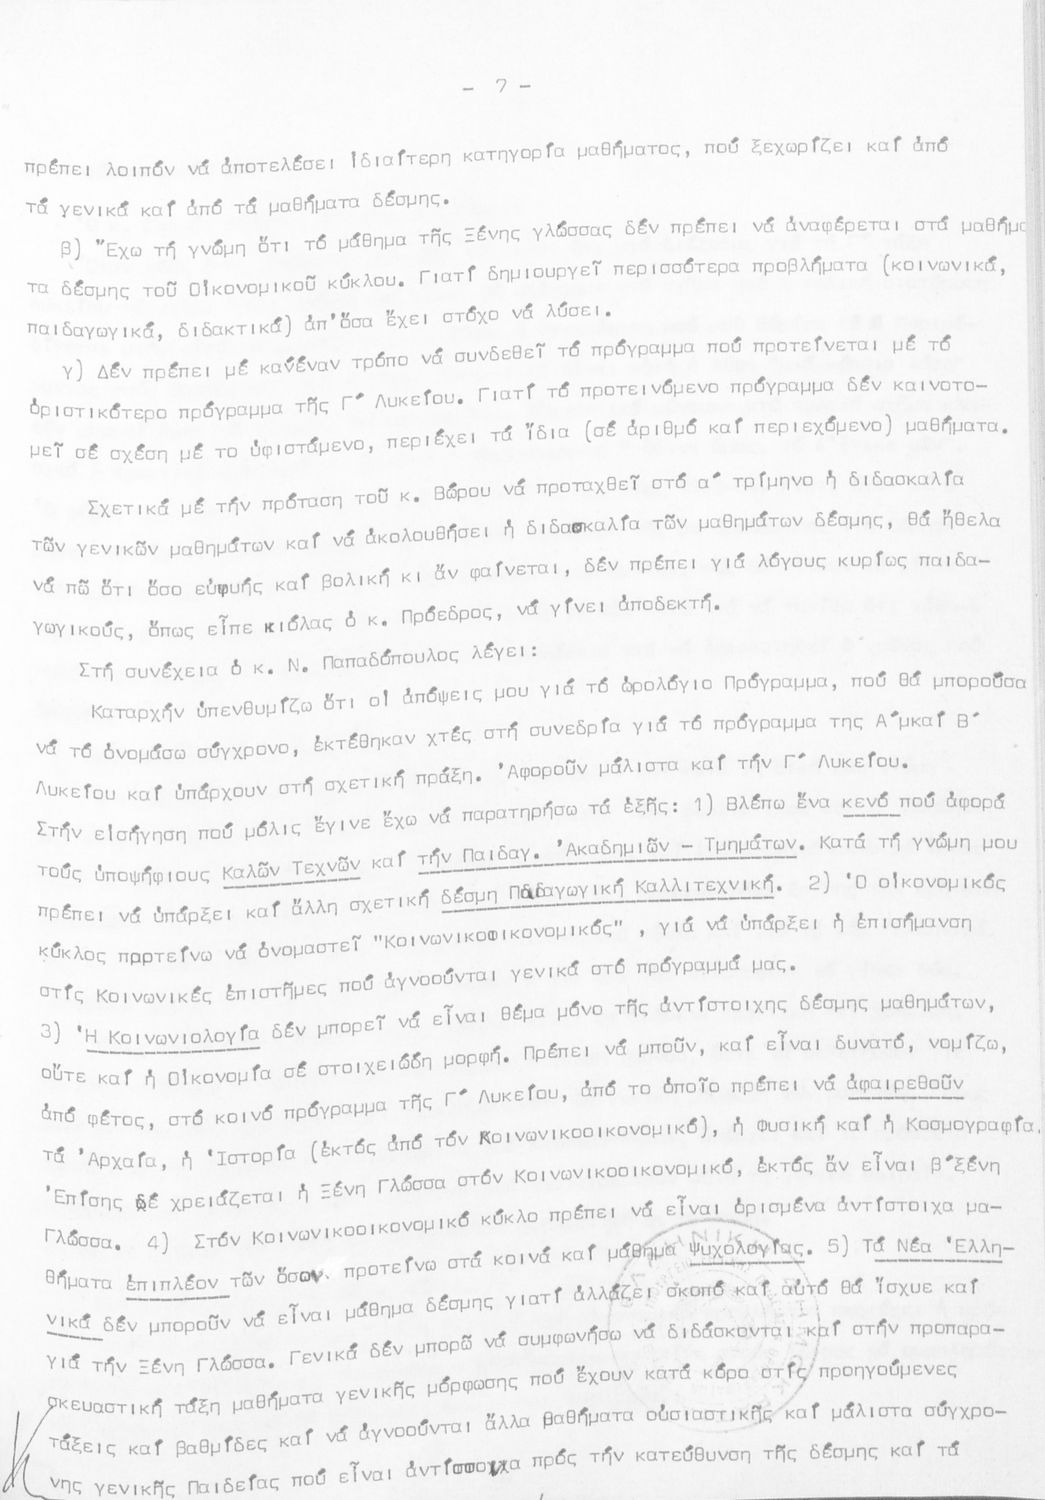 - 7 -
πρέπει λοιπόν νά ἀποτελέσει ἰδιαίτερη κατηγορία μαθήματος, πού ξεχωρίζει καί ἀπό
τά γενικά καί ἀπό τά μαθήματα δέσμης.
β) Ἔχω τή γνώμη ὅτι τό μάθημα τῆς Ξένης γλώσσας δέν πρέπει νά ἀναφέρεται στά μαθήμα
τα δέσμης τοῦ Οἰκονομικοῦ κύκλου. Γιατί δημιουργεῖ περισσότερα προβλήματα (κοινωνικά,
παιδαγωγικά, διδακτικά) ἀπ'ὅσα ἔχει στόχο νά λύσει.
γ) Δέν πρέπει μέ κανέναν τρόπο νά συνδεθεῖ τό πρόγραμμα πού προτείνεται μέ τό
ὁριστικότερο πρόγραμμα τῆς Γ΄ Λυκείου. Γιατί τό προτεινόμενο πρόγραμμα δέν καινοτο-
μεῖ σέ σχέση μέ το ὑφιστάμενο, περιέχει τά ἴδια (σέ ἀριθμό καί περιεχόμενο) μαθήματα.
Σχετικά μέ τήν πρόταση τοῦ κ. Βώρου νά προταχθεῖ στό α΄ τρίμηνο ἡ διδασκαλία
τῶν γενικῶν μαθημάτων καί νά ἀκολουθήσει ἡ διδασκαλία τῶν μαθημάτων δέσμης, θά ἤθελα
νά πῶ ὅτι ὅσο εὐφυής καί βολική κι ἄν φαίνεται, δέν πρέπει γιά λόγους κυρίως παιδα-
γωγικούς, ὅπως εἶπε κιόλας ὁ κ. Πρόεδρος, νά γίνει ἀποδεκτή.
Στή συνέχεια ὁ κ. Ν. Παπαδόπουλος λέγει:
Καταρχήν ὑπενθυμίζω ὅτι οἱ ἀπόψεις μου γιά τό ὡρολόγιο Πρόγραμμα, πού θά μποροῦσα
νά τό ὀνομάσω σύγχρονο, ἐκτέθηκαν χτές στή συνεδρία γιά τό πρόγραμμα της Α΄μκαί Β΄
Λυκείου καί ὑπάρχουν στή σχετική πράξη. Ἀφοροῦν μάλιστα καί τήν Γ΄ Λυκείου.
Στήν εἰσήγηση πού μόλις ἔγινε ἔχω νά παρατηρήσω τά ἑξῆς: 1) Βλέπω ἕνα κενό πού ἀφορά
τούς ὑποψήφιους Καλῶν Τεχνῶν καί τήν Παιδαγ. Ἀκαδημιῶν - Τμημάτων. Κατά τή γνώμη μου
πρέπει νά ὑπάρξει καί ἄλλη σχετική δέσμη Παιδαγωγική Καλλιτεχνική. 2) Ὁ οἰκονομικός
κύκλος προτείνω νά ὀνομαστεῖ "Κοινωνικοοικονομικός" , γιά νά ὑπάρξει ἡ ἐπισήμανση
στίς Κοινωνικές ἐπιστῆμες πού ἀγνοούνται γενικά στό πρόγραμμά μας.
3) Ἡ Κοινωνιολογία δέν μπορεῖ νά εἶναι θέμα μόνο τῆς ἀντίστοιχης δέσμης μαθημάτων,
οὔτε καί ἡ Οἰκονομία σέ στοιχειώδη μορφή. Πρέπει νά μποῦν, καί εἶναι δυνατό, νομίζω,
ἀπό φέτος, στό κοινό πρόγραμμα τῆς Γ΄ Λυκείου, ἀπό το ὁποῖο πρέπει νά ἀφαιρεθοῦν
τά Ἀρχαία, ἡ Ἱστορία (ἐκτός ἀπό τόν Κοινωνικοοικονομικό), ἡ Φυσική καί ἡ Κοσμογραφία.
Ἐπίσης δέ χρειάζεται ἡ Ξένη Γλώσσα στόν Κοινωνικοοικονομικό, ἐκτός ἄν εἶναι β΄ξένη
Γλώσσα. 4) Στόν Κοινωνικοοικονομικό κύκλο πρέπει νά εἶναι ὁρισμένα ἀντίστοιχα μα-
θήματα ἐπιπλέον τῶν ὅσων προτείνω στά κοινά καί μάθημα Ψυχολογίας. 5) Τά Νέα Ἑλλη-
νικά δέν μποροῦν νά εἶναι μάθημα δέσμης γιατί ἀλλάζει σκοπό καί αὐτό θά ἴσχυε καί
γιά τήν Ξένη Γλώσσα. Γενικά δέν μπορῶ νά συμφωνήσω νά διδάσκονται καί στήν προπαρα-
σκευαστική τάξη μαθήματα γενικῆς μόρφωσης πού ἔχουν κατά κόρο στίς προηγούμενες
τάξεις καί βαθμίδες καί νά ἀγνοούνται ἄλλα μαθήματα οὐσιαστικῆς καί μάλιστα σύγχρο-
νης γενικῆς Παιδείας πού εἶναι ἀντίστοιχα πρός τήν κατεύθυνση τῆς δέσμης καί τά